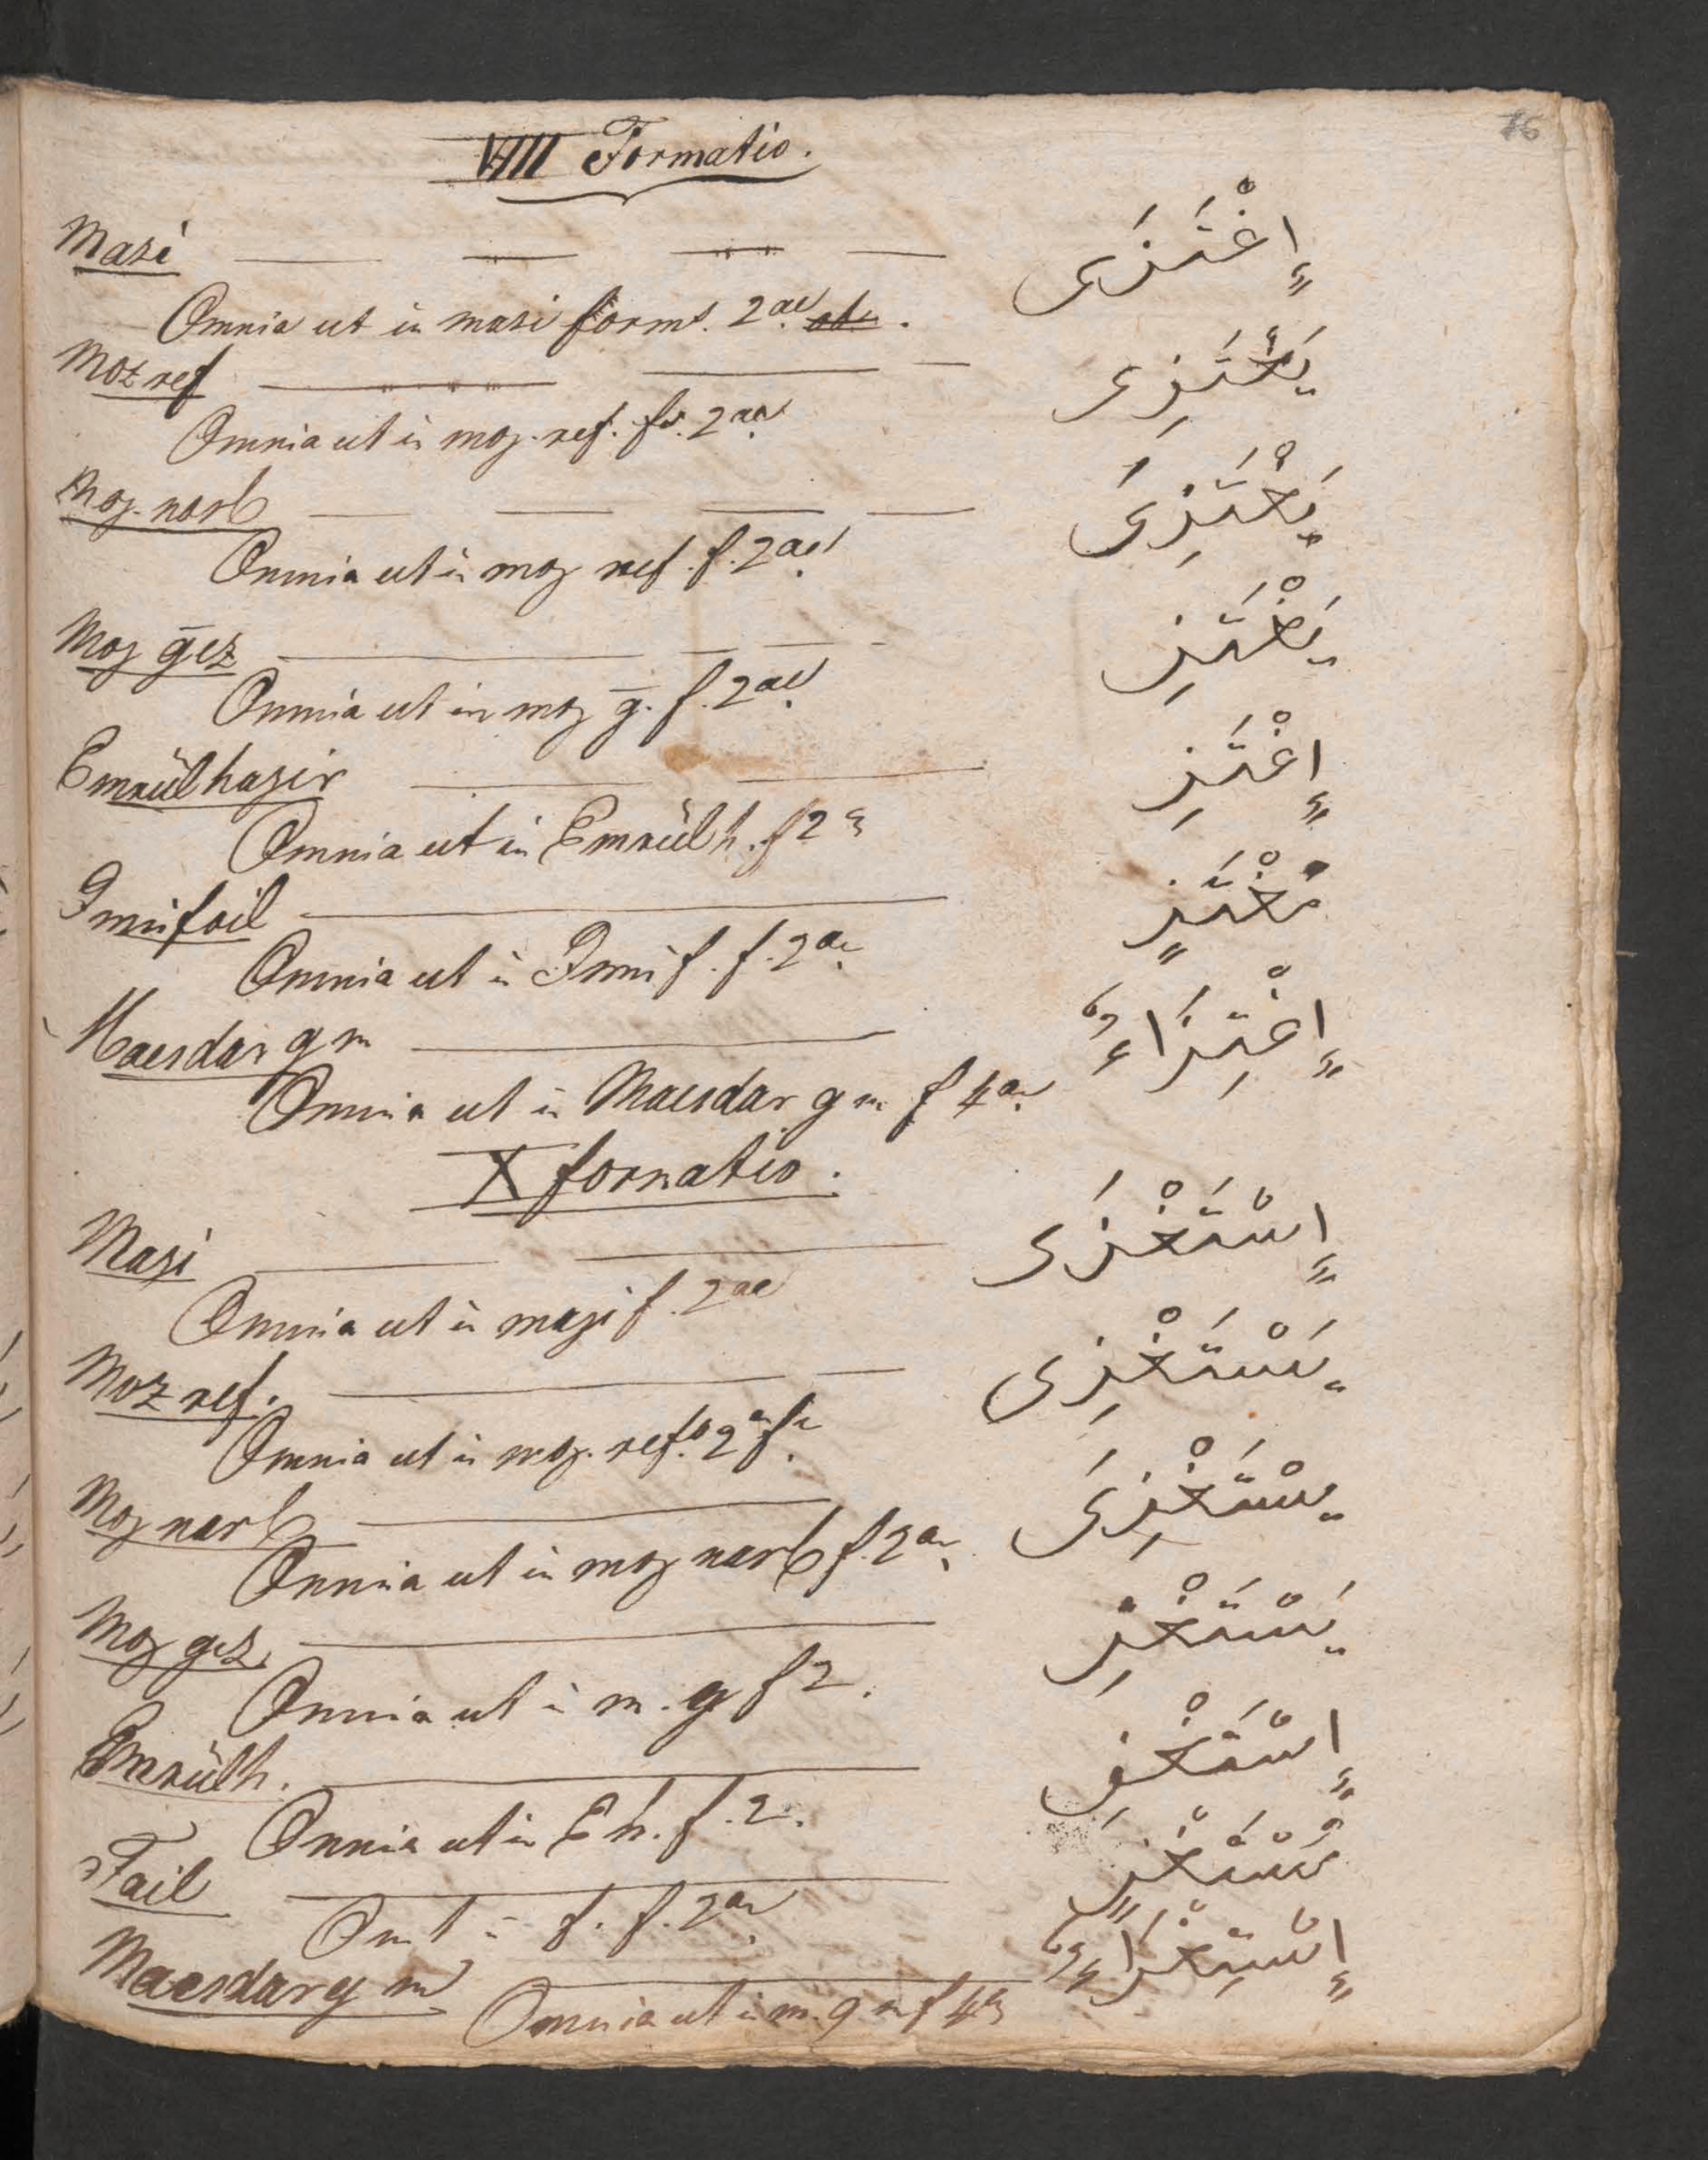 16
VIII Formatio.
Mazi إِغْتَزَى
Omnia ut in mazi form. 2ae.
Moz ref يَغْتَزِى
Omnia ut in moz. ref. f. 2ae
Moz. nasb يَغْتَزِىَ
Omnia ut in moz ref. f. 2ae
Moz ḡez يَغْتَزِ
Omnia ut in moz ḡ. f. 2ae
Emrülhazir إِغْتَزِ
Omnia ut in Emrülh. f 2ae
Ismi fail مُغْتَزٍ
Omnia ut in Ismi f. f. 2ae
Maesdar g m إِغْتِزَاءٌ
Omnia ut in Maesdar g m f 4ae
X formatio.
Mazi إِسْتَغْزَى
Omnia ut in mazi f. 2ae
Moz ref. يَسْتَغْزِى
Omnia ut in moz. ref. 2ae f.
Moz nasb يسْتَغْزِىَ
Omnia ut in moz nasb f. 2ae
Moz gez. يَسْتَغْزِ
Omnia ut in m. g f 2.
Emrülh. إِسْتَغْزِ
Omnia ut in E h. f. 2.
Fail مُسْتَغْزٍ
Om t in f. f. 2ae
Maesdar g m إِسْتِغْزَاءٌ
Omnia ut in m. g m f 4ae